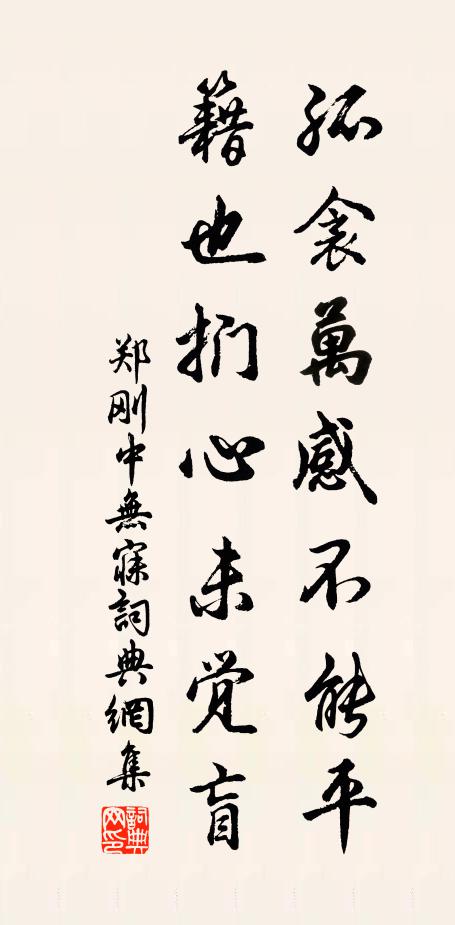 孤衾萬感不能平
籍也捫心未覚盲
郑刚中無寐詞典網集
詞典网印